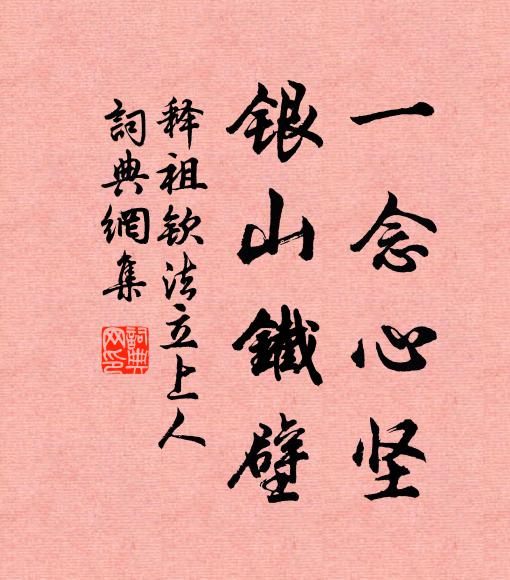 一念心坚
银山鐵壁
释祖钦法立上人
詞典網集
詞典
网印